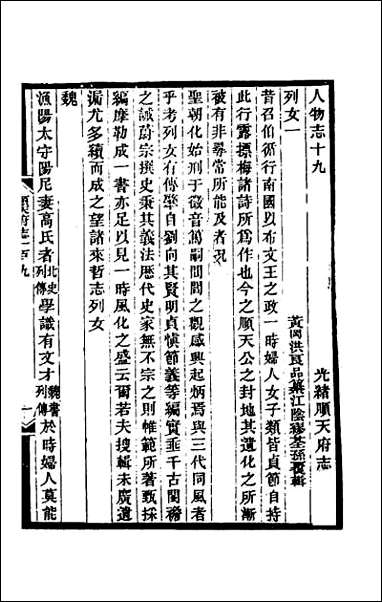 人物志十九　　　　　光緒順天府志
列女一　　　　黃岡洪良品纂江陰繆荃孫覆輯
昔召伯循行南國以布文王之政一時婦人女子類皆貞節自持
此行露摽梅諸詩所爲作也今之順天公之封地其遺化之所漸
被有非尋常所能及者況
聖朝化始刑于徽音篤嗣閭閻之觀感興起焉與三代同風者
乎考列女有傳肇自劉向其賢明貞慎節義等編實垂千古閫襜
之誡蔚宗撰史秉其義法歷代史家無不宗之則帷範所著甄採
編摩勒成一書亦足以見一時風化之盛云爾若夫搜輯未廣遺
漏尤多續而成之望諸來哲志列女
魏
漁陽太守陽尼妻高氏者北史列傳學識有文才魏書列傳於時婦人莫能
順天府志一百九　一